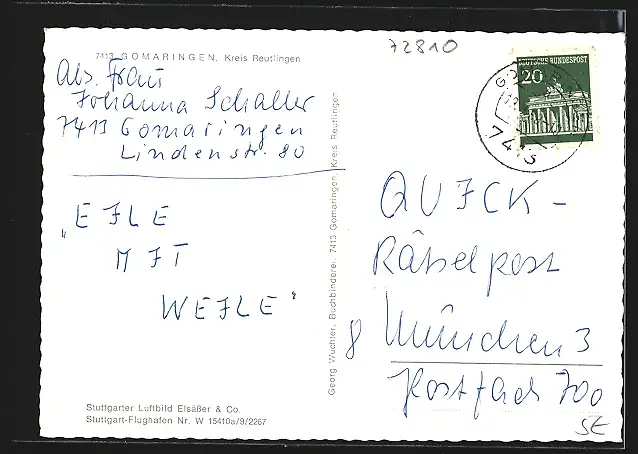 72810
7413 GOMARINGEN, Kreis Reutlingen
Abs. Frau
Johanna Schaller
7413 Gomaringen
Lindenstr. 80
„EILE
MIT
WEILE"
DEUTSCHE BUNDESPOST
20
7413
QUICK-
Rätselpost
8 München 3
Postfach 700
Georg Wuchter, Buchbinderei, 7413 Gomaringen, Kreis Reutlingen
Stuttgarter Luftbild Elsäßer & Co.
Stuttgart-Flughafen Nr. W 15410a/9/2267
SE